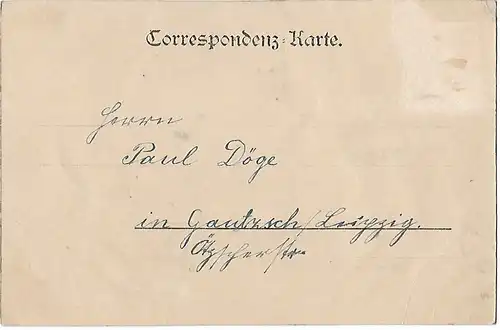 Correspondenz-Karte.
Herrn
Paul Döge
in Gautzsch/Leipzig.
Ötzscherstr